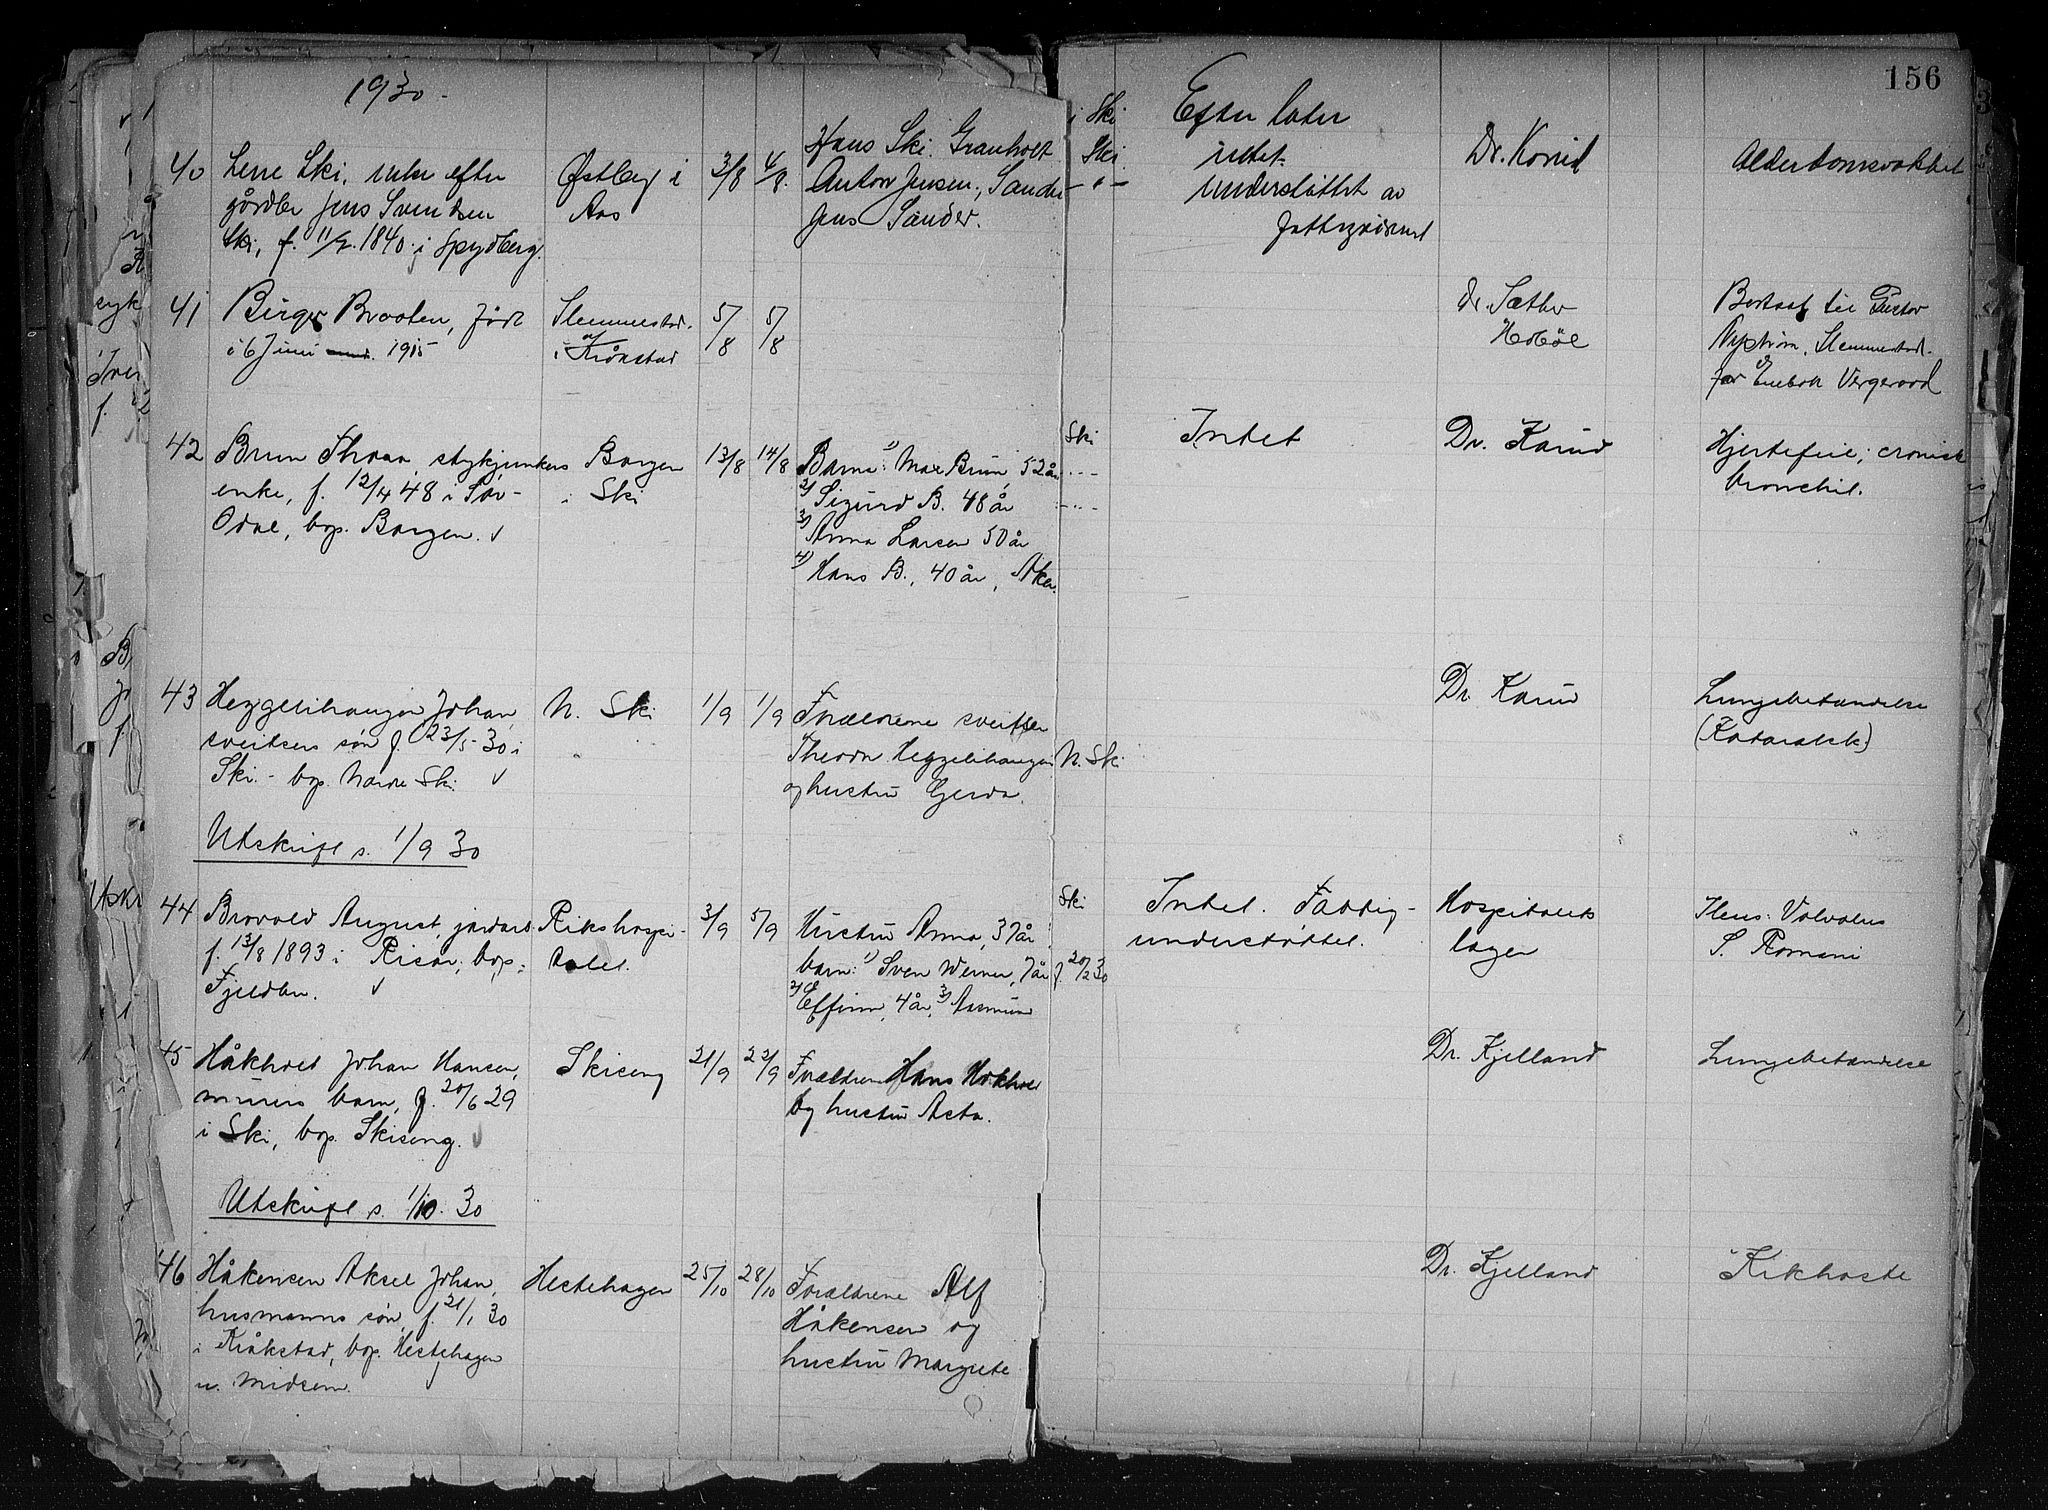 156
1930.
40 Lene Ski, enke efter
gårdbr Jens Svendsen
Ski, f. 11/2. 1840. i Spydberg.
Østberg i
Aas
3/8 4/8.
Hans Ski. Granholt i Ski
Anton Jensen, Sander Ski
Jens Sander. - " -
Efter later
intet.
understøttet av
Dr. Korud
Alderdomsvakhet
41 Birger Braaten, født
i 6 Juni 1915
Slemmestad.
i Kråkstad
5/8 5/8
Dr. Sæther
Hobøl
Bortsat til Gustav
Nystrøm, Slemmestad.
for Enebak Vergeraad
42 Brun Thora, stykjunkers
enke, f. 12/4 48 i Sør-
Odal, bop. Borgen. v
Borgen
i Ski
13/8 14/8
Barn: 1) Max Brun, 52 år Ski
2) Sigurd B. 48 år - " -
3) Anna Larsen 50 år - " -
4) Hans B., 40 år, Aker.
Intet
Dr. Korud
Hjertefeil; cronisk
bronchit.
43 Heggelihaugen Johan
sveitsers søn f. 23/5-30 i
Ski. - bop. Nordre Ski. v
N. Ski
1/9 1/9
Forældrene sveitser
Theodor Heggelihaugen N. Ski
og hustru Gerda.
Dr. Korud
Lungebetændelse
(Kataralsk)
Utskrift s. 1/9 30
44 Brovold August, jordarb.
f. 13/8 1893 i Risør, bop.
Fjeldbu. v
Rikshospi-
talet.
3/9 5/9
Hustru Anna, 37 år Ski
barn: 1) Sven Werner, 7 år
2) Elfinn, 4 år, 3) Rasmus f. 20/2 30
Intet. Fattig-
understøttet.
Hospitalets
læger
Ileus: Volvolus
S. Romani
45 Håkholt Johan Hansen,
murers barn, f. 20/6 29
i Ski, bop. Skiseng. v
Skiseng
21/9 22/9
Forældrene Hans Håkholt
og hustru Asta.
Dr. Kjelland
Lungebetændelse
Utskrift s. 1/10. 30
46 Håkensen Aksel Johan,
husmanns søn, f. 21/1 30
i Kråkstad, bop. Hestehagen
u. Midsem. v
Hestehagen
25/10 28/10
Forældrene Alf
Håkensen og
hustru Margrete
Dr. Kjelland
Kikhoste